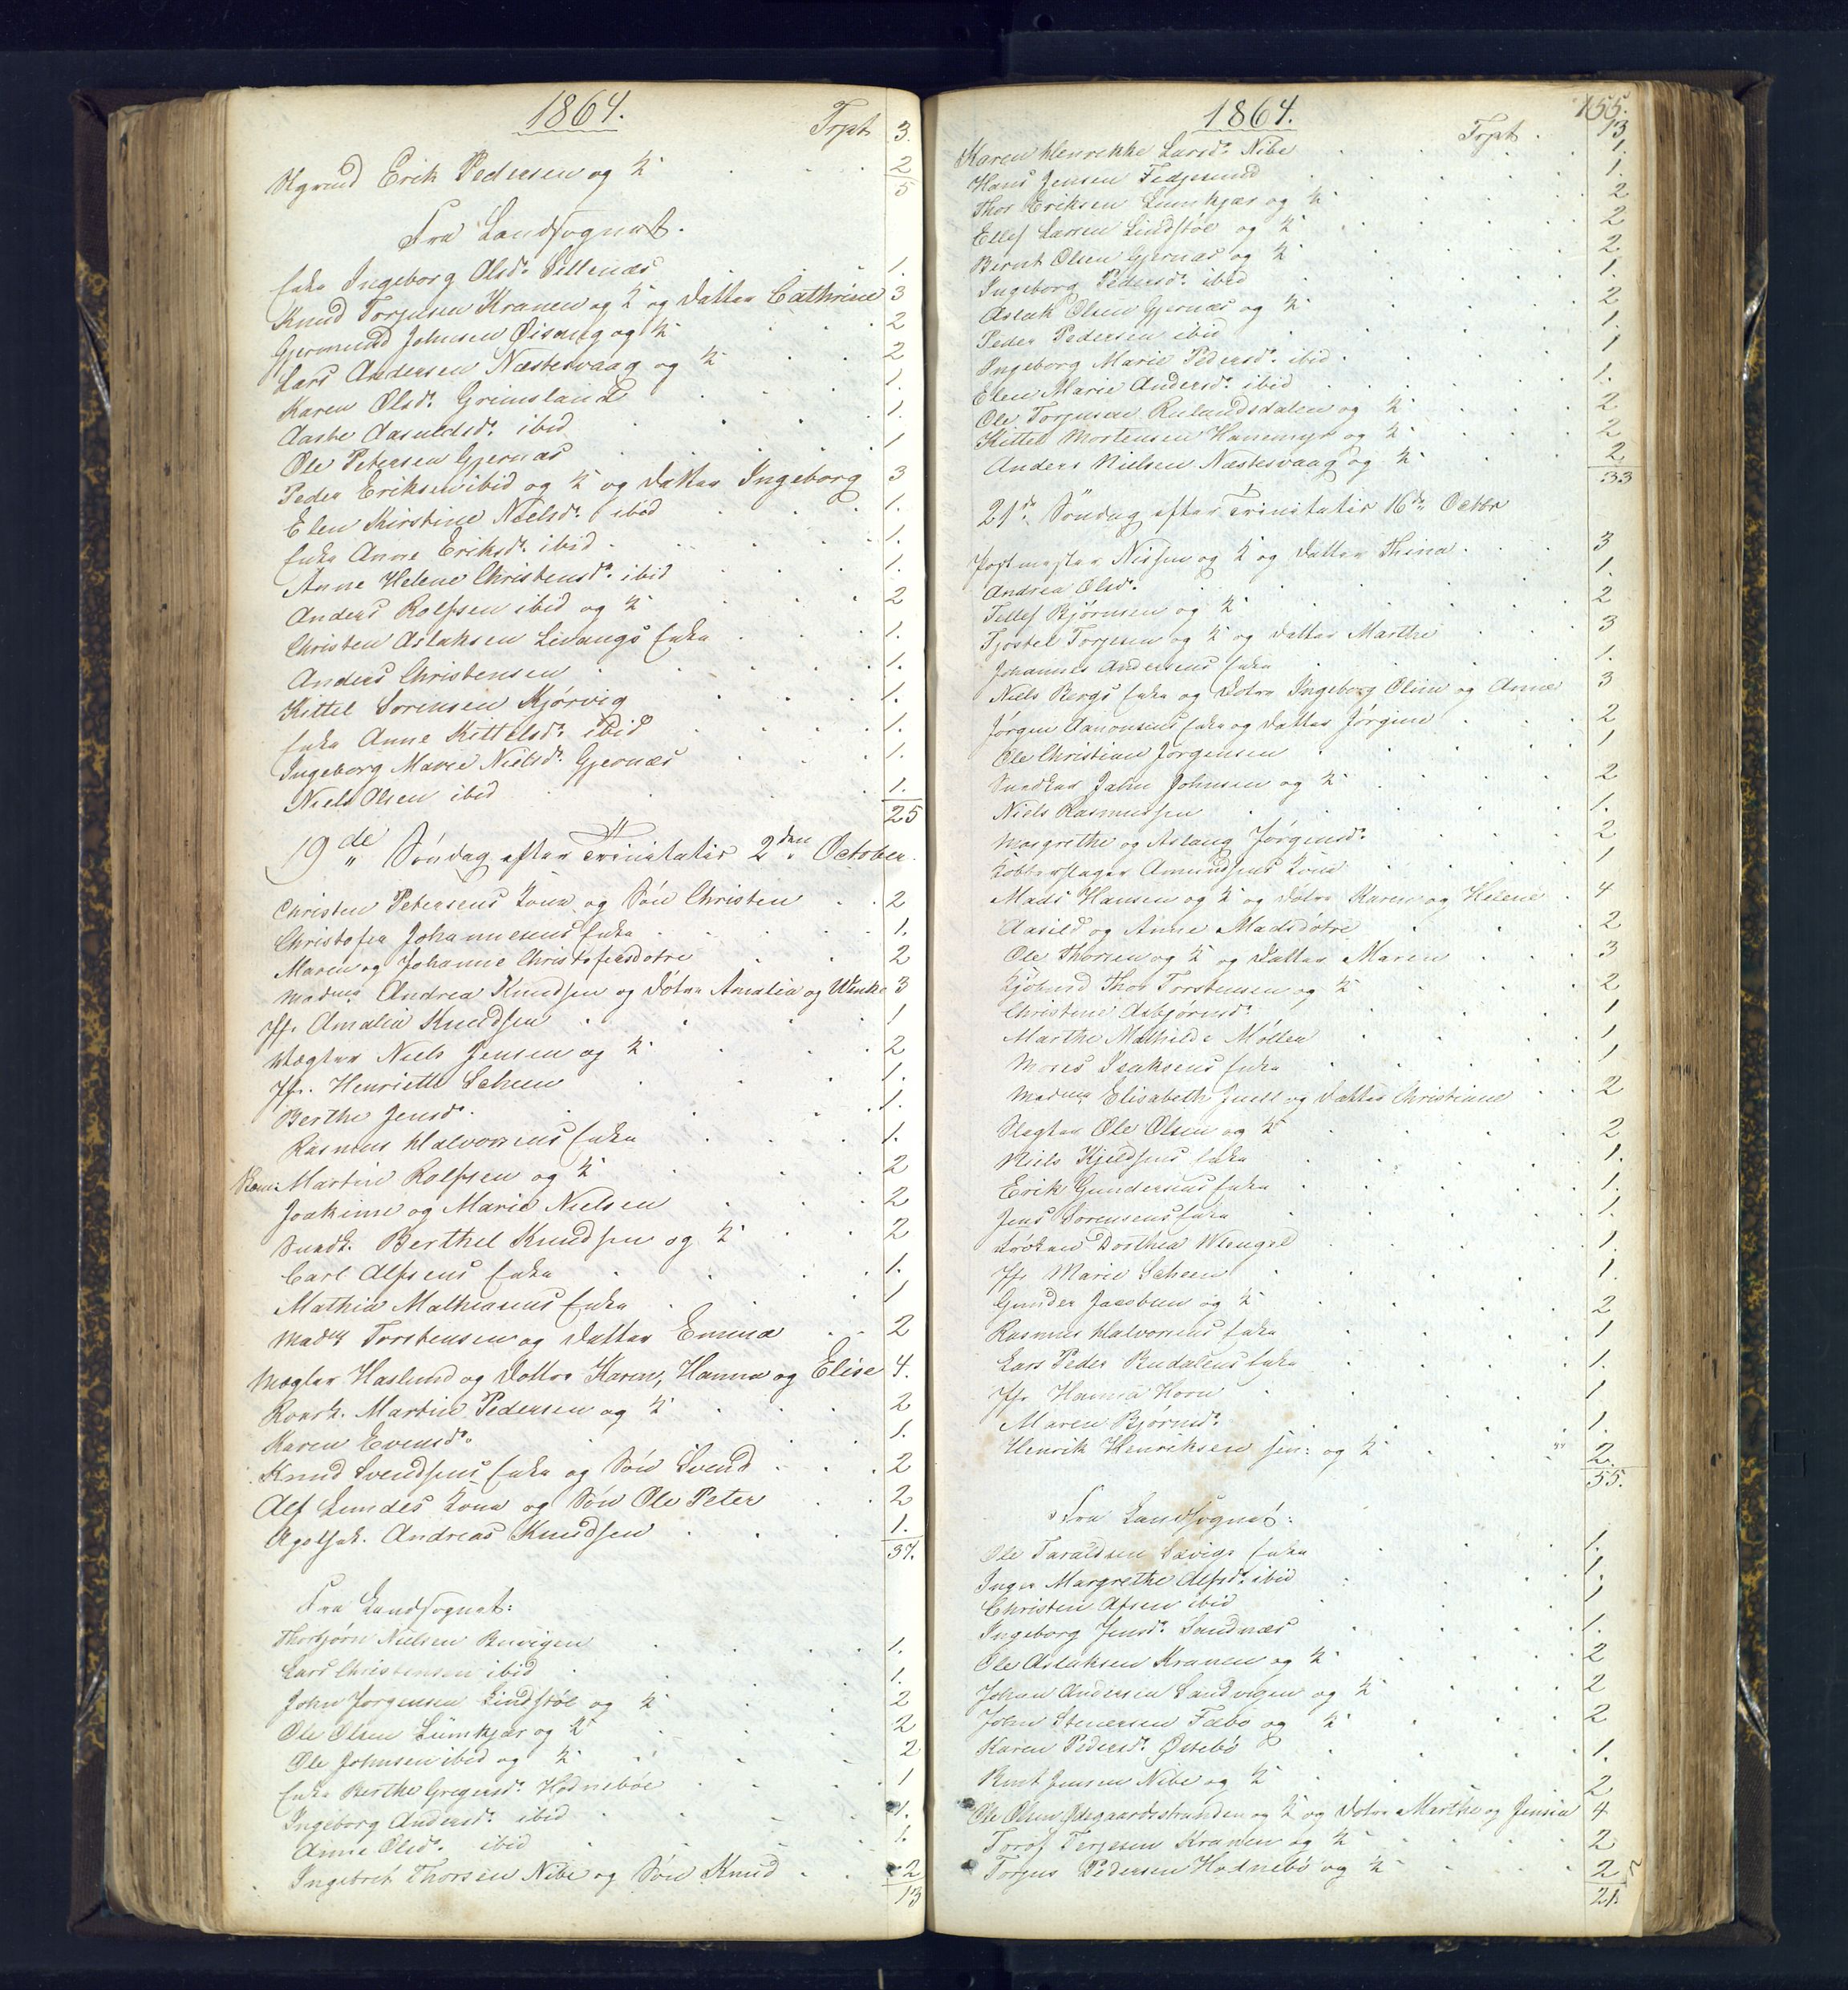 1864.
Trpt 3.
Erik Pedersen og K. 2
5
Fra Landsognet.
Enke Ingeborg Olsdr. Sillenæs 1.
Knud Torjusen Kranen og K. og Datter Cathrine 3
Gjermund Johnsen Øisang og K. 2
Lars Andersen Næstesvaag og K. 2
Karen Olsdr. Grimsland 1.
Aaste Aasuldsdr. ibid 1.
Ole Petersen Gjernæs 1
Peder Eriksen ibid og K. og Datter Ingeborg 3
Elen Kirstine Nielsdr. ibid 1.
Enke Anne Eriksdr. ibid 1.
Anne Helene Christensdr. ibid 1.
Anders Rolfsen ibid og K. 2
Christen Aslaksen Livangs Enke 1.
Anders Christensen 1.
Kittel Sørensen Kjørvig 1.
Enke Anne Kittelsdr. ibid 1.
Ingeborg Marie Nielsdr. Gjernæs 1.
Niels Olsen ibid 1.
25
19de Søndag efter Trinitatis 2den October.
Christen Petersens Kone og Søn Christen 2
Christofer Johannesens Enke 1.
Maren og Johanne Christofersdøtre 2
Madme Andrea Knudsen og Døtre Amalia og Wenke 3
Jfr. Amalia Knudsen 1
Vægter Niels Jensen og K. 2
Jfr. Henriette Scheen 1.
Berthe Jensdr. 1.
Rasmus Halvorsens Enke 1.
Martin Rolfsen og K. 2
Joakime og Marie Nielsen 2
Snedk. Berthel Knudsen og K. 2
Carl Alfsens Enke 1.
Mathia Mathiasens Enke 1
Madme Torstensen og Datter Emma 2
Mægler Haslund og Døttre Karen, Hanna og Elise 4.
Martin Pedersen og K. 2
Karen Evensdr. 1.
Knud Svendsens Enke og Søn Svend 2
Alf Lundes Kone og Søn Ole Peter 2
Andreas Knudsen 1.
37.
Fra Landsognet:
Thorbjørn Nielsen Buvigen 1.
Lars Christensen ibid 1.
John Jørgensen Lindstøl og K. 2
Ole Olsen Lømkjær og K. 2
Ole Johnsen ibid og K. 2
Enke Berthe Gregersdr. Hødnebøe 1
Ingeborg Andersdr. ibid 1.
Anne Olsdr. ibid 1.
Ingebret Thorsen Nibe og Søn Knud 2
13
1864.
155.
Trpt. 13
Karen Henrikke Larsdr. Nibe 1.
Hans Jensen Fidjesund 1.
Thor Eriksen Lømkjær og K. 2
Ellef Larsen Lindstøl og K. 2
Bernt Olsen Gjernæs og K. 2
Ingeborg Pedersdr. ibid 1.
Aslak Olsen Gjernæs og K. 2
Peder Pedersen ibid 1.
Ingeborg Marie Pedersdr. ibid 1
Elen Marie Andersdr. ibid 1.
Ole Torjusen Rulandsdalen og K. 2
Kittel Mortensen Hanemyr og K. 2
Anders Nielsen Næstesvaag og K. 2
33
21de Søndag efter Trinitatis 16de Octbr
Postmester Nissen og K. og Datter Thina 3
Andrea Olsdr. 1.
Tellef Bjørnsen og K. 2
Tjostel Torjesen og K. og Datter Marthe 3
Johannes Andersens Enke 1.
Niels Bergs Enke og Døtre Ingeborg Oline og Anne 3
Jørgen Aanonsens Enke og Datter Jørgine 2
Ole Christian Jørgensen 1
Snedker Jahn Johnsen og K. 2
Niels Rasmussen 1.
Margrethe og Aslaug Jørgensdr. 2
Kobberslager Amundsens Kone 1
Mads Hansen og K. og Døtre Karen og Helene 4
Aasild og Anne Madsdøtre 2
Ole Thorsen og K. og Datter Maren 3
Kjøbmd Thor Torstensen og K. 2
Christine Asbjørnsdr. 1
Marthe Mathilde Møller 1
Moses Isaksens Enke 1
Madme Elisabeth Juell og Datter Christiane 2
Slagter Ole Olsen og K. 2
Niels Kjeldsens Enke 1.
Erik Gundersens Enke 1.
Jens Sørensens Enke 1.
Frøken Dorthea Wleugel 1.
Jfr Marie Scheen 1.
Gunder Jacobsen og K. 2
Rasmus Halvorsens Enke 1
Lars Peder Rudalens Enke 1.
Jfr Hanna Horn 1
Maren Bjørnsdr. 1.
Henrik Henriksen sen: og K. 2.
55.
Fra Landsognet:
Ole Taraldsen Sævigs Enke 1.
Inger Margrethe Alfsdr. ibid 1.
Christen Alfsen ibid 1
Ingeborg Jensdr. Sandnæs 1.
Ole Aslaksen Kranen og K. 2
Johan Andersen Sandvigen og K. 2
John Stenersen Fæbo og K. 2
Karen Pedersdr. Østebø 1.
Knut Jensen Nibe og K. 2
Ole Olsen Ødegaardsstranden og K. og Døtre Marthe og Jensia 4
Torof Terjesen Kranen og K. 2
Torjus Pedersen Hødnebø og K. 2
21.